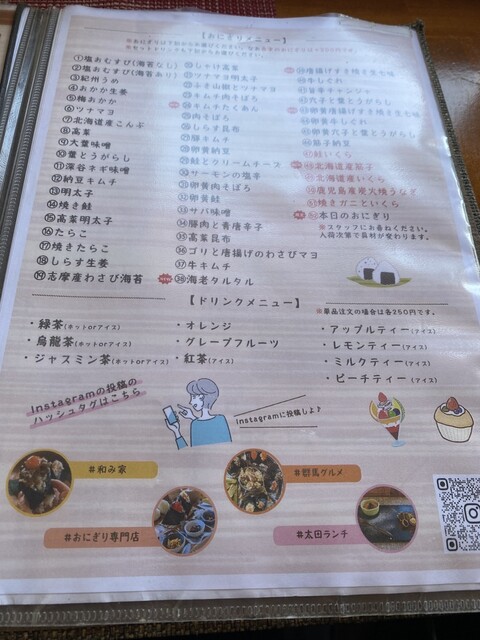 【おにぎりメニュー】
①塩おむすび(海苔なし)
②塩おむすび(海苔あり)
③紀州うめ
④おかか生姜
⑤梅おかか
⑥ツナマヨ
⑦北海道産こんぶ
⑧高菜
⑨大葉味噌
⑩葉とうがらし
⑪深谷ネギ味噌
⑫納豆キムチ
⑬明太子
⑭焼き鮭
⑮高菜明太子
⑯たらこ
⑰焼きたらこ
⑱しらす生姜
⑲志摩産わさび海苔
⑳しゃけ高菜
㉑ツナマヨ明太子
㉒ふき山椒とツナマヨ
㉓キムチ肉そぼろ
㉔キムチたくあん
㉕肉そぼろ
㉖しらす昆布
㉗豚キムチ
㉘卵黄納豆
㉙鮭とクリームチーズ
㉚サーモンの塩辛
㉛卵黄肉そぼろ
㉜卵黄鮭
㉝サバ味噌
㉞豚肉と青唐辛子
㉟高菜昆布
㊱ゴリと唐揚げのわさびマヨ
㊲牛キムチ
㊳海老タルタル
牛しぐれ
旨辛チャンジャ
穴子と葉とうがらし
卵黄牛しぐれ
卵黄穴子と葉とうがらし
筋子納豆
鮭いくら
北海道産筋子
北海道産いくら
鹿児島産炭火焼うなぎ
焼きガニといくら
本日のおにぎり
※スタッフにお尋ねください。
入荷次第で具材が変わります。
【ドリンクメニュー】
※単品注文の場合は各250円です。
・緑茶(ホットorアイス)
・烏龍茶(ホットorアイス)
・ジャスミン茶(ホットorアイス)
・オレンジ
・グレープフルーツ
・紅茶(アイス)
・アップルティー(アイス)
・レモンティー(アイス)
・ミルクティー(アイス)
・ピーチティー(アイス)
Instagramの投稿の
ハッシュタグはこちら
Instagramに投稿しよ♪
#和み家
#群馬グルメ
#おにぎり専門店
#太田ランチ